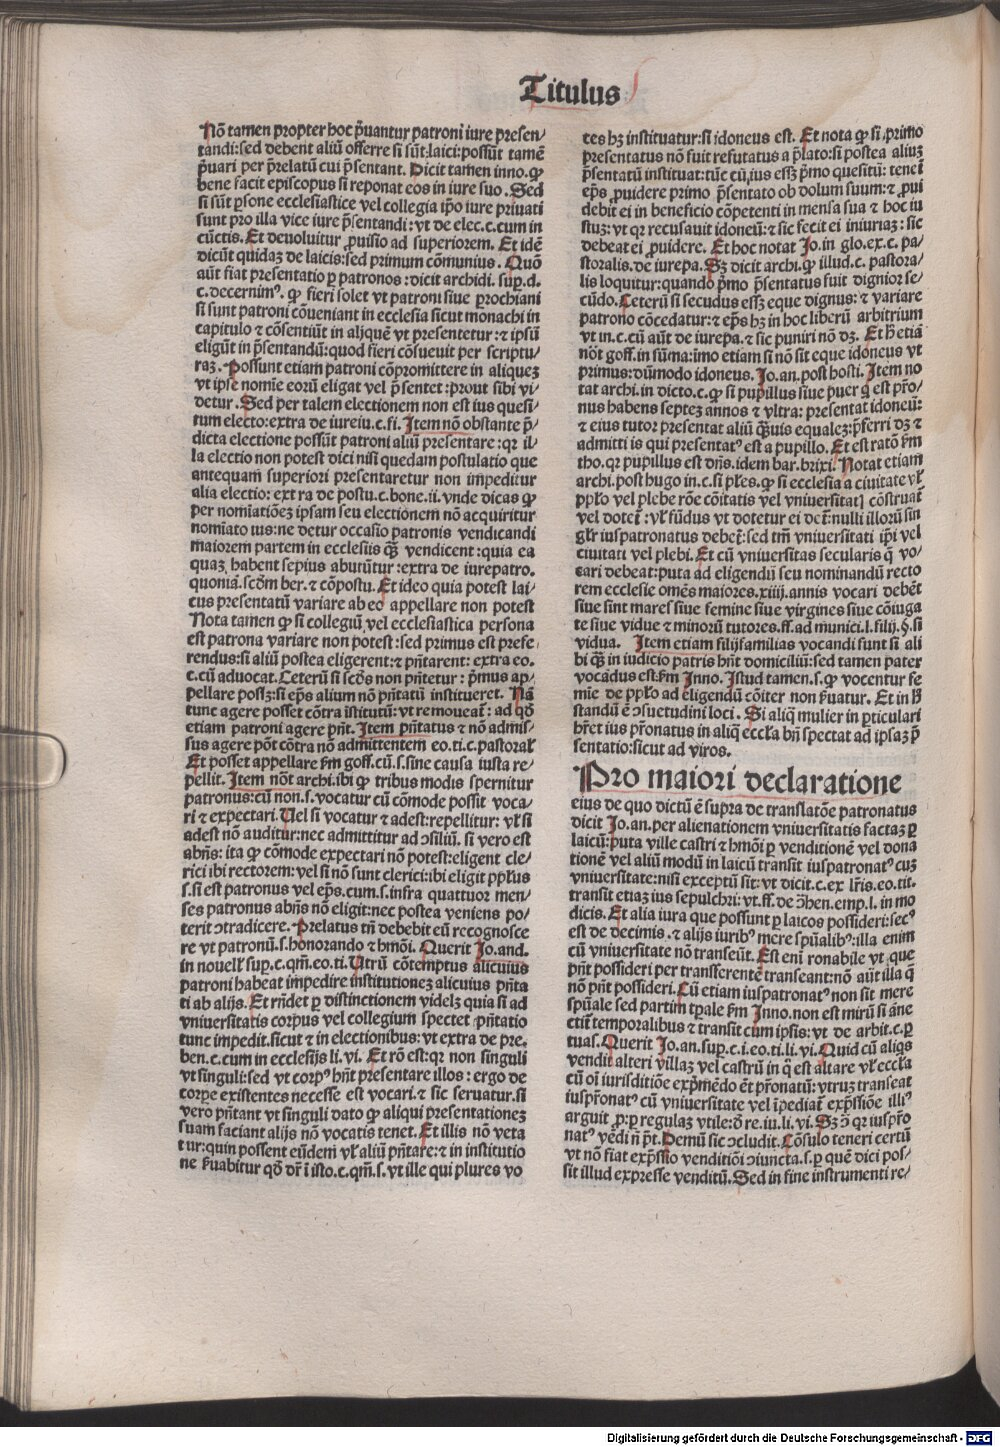 Titulus
Nō tamen propter hoc p̄uantur patroni iure presen/
tandi:sed debent aliū offerre si sūt laici:possūt tamē
p̄uari per p̄relatū cui p̄sentant. Dicit tamen inno.ꝙ
bene facit episcopus si reponat eos in iure suo. Sed
si sūt ꝑsone ecclesiastice vel collegia ip̄o iure priuati
sunt pro illa vice iure p̄sentandi:vt de elec.c.cum in
cūctis. Et deuoluitur ꝓuisio ad superiorem. Et idē
dicūt quidaꝫ de laicis:sed primum cōmunius. Quō
aūt fiat presentatio ꝑ patronos:dicit archidi. suꝑ.d.
c.decernimꝰ. ꝙ fieri solet vt patroni siue ꝑrochiani
si sunt patroni cōueniant in ecclesia sicut monachi in
capitulo ⁊ cōsentiūt in aliquē vt presentetur:⁊ ipsū
eligūt in p̄sentandū:quod fieri cōsueuit per scriptu/
raꝫ. Possunt etiam patroni cōpromittere in aliqueꝫ
vt ipse nomīe eorū eligat vel p̄sentet:prout sibi vi/
detur. Sed per talem electionem non est ius quesi/
tum electo:extra de iureiu.c.fi. Item nō obstante p̄/
dicta electione possūt patroni aliū presentare:qr il/
la electio non potest dici nisi quedam postulatio que
antequam superiori presentaretur non impeditur
alia electio:extra de postu.c.bone.ii. vnde dicas ꝙ
per nomīatiōeꝫ ipsam seu electionem nō acquiritur
nomīato ius:ne detur occasio patronis vendicandi
maiorem partem in ecclesiis q̄ꝫ vendicent:quia ea
quaꝫ habent sepius abutūtur:extra de iurepatro.
quoniā.scd̄m ber.⁊ cōpostu. Et ideo quia potest lai/
cus presentatū variare ab eo appellare non potest
Nota tamen ꝙ si collegiū vel ecclesiastica persona
est patrona variare non potest:sed primus est prefe
rendus:si aliū postea eligerent:⁊ pn̄tarent: extra eo.
c.cū aduocat. Ceterū si scd̄s non pn̄tetur: p̄mus ap/
pellare possꝫ:si ep̄s alium nō pn̄tatū institueret. Nā
tunc agere posset cōtra īstitutū:vt remoueat̄: ad qd̄
etiam patroni agere pn̄t. Item pn̄tatus ⁊ nō admis/
sus agere pōt cōtra nō admittentem eo.ti.c.pastoral̄
Et posset appellare ꝑm goff.cū.s.sine causa iusta re/
pellit. Item nōt archi.ibi ꝙ tribus modis spernitur
patronus:cū non.s.vocatur cū cōmode possit voca/
ri ⁊ expectari. Uel si vocatur ⁊ adest:repellitur: vl̄ si
adest nō auditur:nec admittitur ad ↄsiliū. si vero est
abn̄s: ita ꝙ cōmode expectari nō potest:eligent cle/
rici ibi rectorem:vel si nō sunt clerici:ibi eligit pp̄lus
s.si est patronus vel ep̄s.cum.s.infra quattuor men/
ses patronus abn̄s nō eligit:nec postea veniens po/
terit ↄtradicere. Prelatus tn̄ debebit eū recognosce
re vt patronū.s.honorando ⁊ hmōi. Querit Jo.and.
in nouell̄ suꝑ.c.qm̄.eo.ti. Utrū cōtemptus alicuius
patroni habeat impedire institutioneꝫ alicuius pn̄ta
ti ab alijs. Et rn̄det ꝑ distinctionem videlꝫ quia si ad
vniuersitatis corpus vel collegium spectet pn̄tatio
tunc impedit.sicut ⁊ in electionibus:vt extra de pre.
ben.c.cum in ecclesijs li.vi. Et rō est:qr non singuli
vt singuli:sed vt corpꝰ hn̄t presentare illos:ergo de
corpe existentes necesse est vocari.⁊ sic seruatur.si
vero pn̄tant vt singuli dato ꝙ aliqui presentationeꝫ
suam faciant alijs nō vocatis tenet. Et illis nō veta
tur:quin possent eūdem vl̄ aliū pn̄tare:⁊ in institutio
ne ꝑuabitur qd̄ dr̄ ī isto.c.qm̄.s.vt ille qui plures vo
tes hꝫ instituatur:si idoneus est. Et nota ꝙ si primo
presentatus nō fuit refutatus a p̄lato:si postea aliuꝫ
p̄sentatū instituat:tūc cū ius essꝫ p̄mo quesitū: tenet̄
ep̄s ꝓuidere primo p̄sentato ob dolum suum:⁊ ꝓui
debit ei in beneficio cōpetenti in mensa sua ⁊ hoc iu
stuꝫ:vt qr recusauit idoneū:⁊ sic fecit ei iniuriaꝫ: sic
debeat ei ꝓuidere. Et hoc notat Jo.in glo.ex.c. pa/
storalis.de iurepa. Sꝫ dicit archi.ꝙ illud.c. pastora/
lis loquitur:quando p̄mo p̄sentatus fuit dignior se/
cūdo. Ceterū si secūdus essꝫ eque dignus: ⁊ variare
patrono cōcedatur:⁊ ep̄s hꝫ in hoc liberū arbitrium
vt in.c.cū aūt de iurepa.⁊ sic puniri nō dꝫ. Et h̄ etiā
nōt goff.in sūma:īmo etiam si nō sit eque idoneus vt
primus:dūmodo idoneus. Jo.an.post hosti. Item no
tat archi.in dicto.c.ꝙ si pupillus siue puer q̄ est pr̄o/
nus habens septeꝫ annos ⁊ vltra: presentat idoneū:
⁊ eius tutor presentat aliū q̄ꝫuis equaleꝫ:p̄ferri dꝫ ⁊
admitti is qui presentatꝰ est a pupillo. Et est ratō ꝑm
tho.qr pupillus est dn̄s.idem bar.brixi. Notat etiam
archi.post hugo in.c.si pl̄es.ꝙ si ecclesia a ciuitate vl̄
pp̄lo vel plebe rōe cōitatis vel vniuersitatꝭ cōstruat̄
vel dotet̄:vl̄ fūdus vt dotetur ei det̄:nulli illorū sin
gl̄r iuspatronatus debet̄:sed tm̄ vniuersitati ip̄i vel
ciuitati vel plebi. Et cū vniuersitas secularis q̄ vo/
cari debeat:puta ad eligendū seu nominandū recto
rem ecclesie omēs maiores.xiiij.annis vocari debēt
siue sint mares siue femine siue virgines siue cōiuga
te siue vidue ⁊ minorū tutores.ff.ad munici.l.filij.§.si
vidua. Item etiam filijfamilias vocandi sunt si ali
bi q̄ꝫ in iudicio patris hn̄t domiciliū:sed tamen pater
vocādus est.ꝑm Inno. Istud tamen.s.ꝙ vocentur fe
mīe de pp̄lo ad eligendū cōiter non ꝑuatur. Et in h̄
standū ē ↄsuetudini loci. Si aliq̄ mulier in ꝑticulari
hr̄et ius pr̄onatus in aliq̄ eccl̄a bn̄ spectat ad ipsaꝫ p̄
sentatio:sicut ad viros.
Pro maiori declaratione
eius de quo dictū ē supra de translatōe patronatus
dicit Jo.an.per alienationem vniuersitatis factaꝫ ꝑ
laicū:puta ville castri ⁊ hmōi ꝑ venditionē vel dona
tionē vel aliū modū in laicū transit iuspatronatꝰ cuꝫ
vniuersitate:nisi exceptū sit:vt dicit.c.ex lr̄is.eo.tit.
transit etiaꝫ ius sepulchri:vt.ff.de ↄhen.emp.l.in mo
dicis. Et alia iura que possunt ꝑ laicos possideri:secꝰ
est de decimis.⁊ alijs iuribꝰ mere spūalibꝰ:illa enim
cū vniuersitate nō transeūt. Est enī ronabile vt que
pn̄t possideri per transferentē transeant:nō aūt illa q̄
nō pn̄t possideri. Cū etiam iuspatronatꝰ non sit mere
spūale sed partim tꝑale ꝑm Inno.non est mirū si āne
ctit̄ temporalibus ⁊ transit cum ipsis:vt de arbit.c.ꝑ
tuas. Querit Jo.an.suꝑ.c.i.eo.ti.li.vi. Quid cū aliqs
vendit alteri villaꝫ vel castrū in q̄ est altare vl̄ eccl̄a
cū oī iurisditiōe exp̄mēdo et pr̄onatū: vtruꝫ transeat
iuspr̄onatꝰ cū vniuersitate vel īpediat̄ exp̄ssiōe illiꝰ
arguit ꝓ:ꝑ regulaꝫ vtile:d̄ re.iu.li.vi. Sꝫ ↄ̄ qr iuspr̄o
natꝰ vēdi n̄ p̄t. Demū sic ↄcludit. Cōsulo teneri certū
vt nō fiat exp̄ssio venditiōi ↄiuncta.s.ꝑ quē dici pos/
sit illud expresse venditū. Sed in fine instrumenti re/
Digitalisierung gefördert durch die Deutsche Forschungsgemeinschaft - DFG